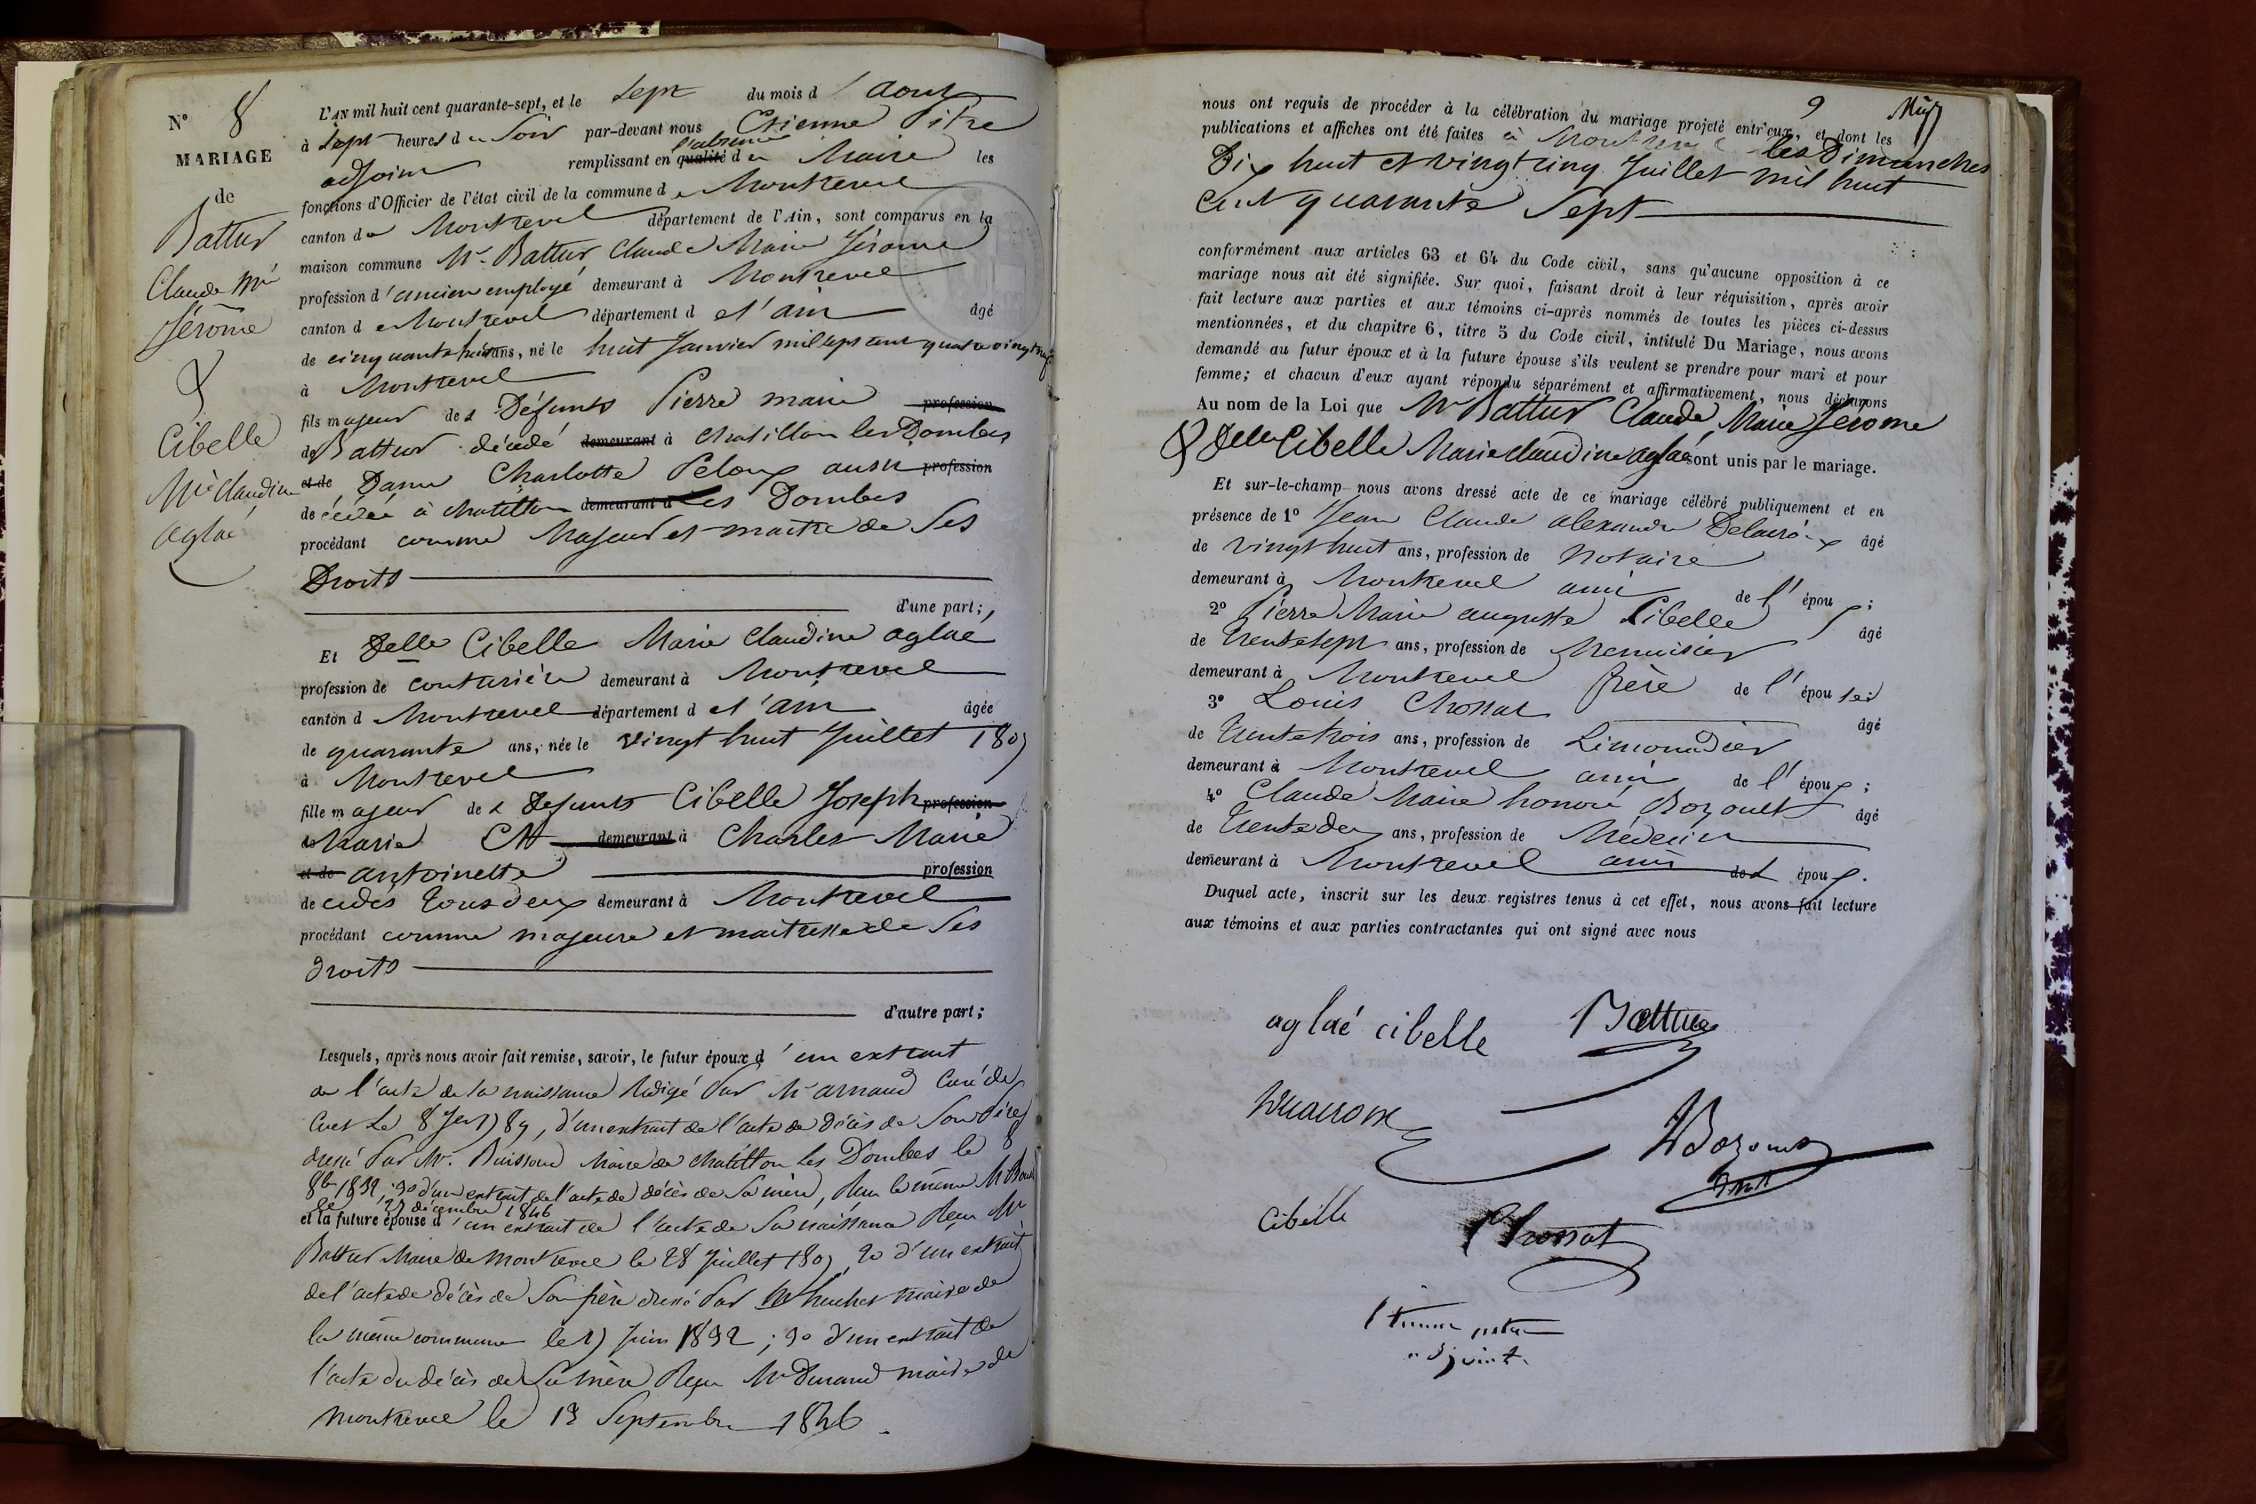 N° 8
MARIAGE
de
Battur
Claude Mie
Jérôme
&
Cibelle
Mie Claudine
aglaé
L'AN mil huit cent quarante-sept, et le sept du mois d'aout
à sept heures du soir par-devant nous Etienne Pitre
adjoint remplissant en l'absence qualité du Maire les
fonctions d'Officier de l'état civil de la commune de Montrevel
canton de Montrevel département de l'Ain, sont comparus en la
maison commune Mr. Battur Claude Marie Jérome
profession d'ancien employé demeurant à Montrevel
canton de Montrevel département de l'ain âgé
de cinquante huit ans, né le huit Janvier mil sept cent quatre vingt neuf
à Montrevel
fils majeur des Défunts Pierre marie profession
de Battur décédé demeurant à Chatillon les Dombes
et de Dame Charlotte Peloux aussi profession
décédée à Chatillon demeurant à Les Dombes
procédant comme Majeur et maitre de ses
Droits
d'une part;
Et Delle Cibelle Marie Claudine aglaé
profession de couturière demeurant à Montrevel
canton d Montrevel département de l'ain âgée
de quarante ans, née le vingt huit Juillet 1807
à Montrevel
fille majeur des Defunts Cibelle Joseph profession
de Marie Ct demeurant à Charles Marie
et de antoinette profession
décédés tous deux demeurant à Montrevel
procédant comme majeure et maitresse de ses
droits
d'autre part;
Lesquels, après nous avoir fait remise, savoir, le futur époux d'un extrait
de l'acte de sa naissance rédigé par Mr arnaud Curé de
Cuet le 8 Jer 1789, d'un extrait de l'acte de décès de son Père
dressé par Mr. Buisson Maire de Chatillon les Dombes le 8
8bre 1832; 3° d'un extrait de l'acte de décès de sa mère, reçu le même Mr
le 27 décembre 1846
et la future épouse d'un extrait de l'acte de sa naissance reçu Mr
Battur Maire de Montrevel le 28 Juillet 1807, 2° d'un extrait
de l'acte de décès de son père dressé par Mr maire de
la même commune le 17 Juin 1832; 3° d'un extrait de
l'acte du décès de sa mère reçu Mr Durand maire de
Montrevel le 13 Septembre 1846.
9
nous ont requis de procéder à la célébration du mariage projeté entr'eux, et dont les
publications et affiches ont été faites à Montrevel les Dimanches
Dix huit et vingt cinq Juillet mil huit
Cent quarante Sept
conformément aux articles 63 et 64 du Code civil, sans qu'aucune opposition à ce
mariage nous ait été signifiée. Sur quoi, faisant droit à leur réquisition, après avoir
fait lecture aux parties et aux témoins ci-après nommés de toutes les pièces ci-dessus
mentionnées, et du chapitre 6, titre 5 du Code civil, intitulé Du Mariage, nous avons
demandé au futur époux et à la future épouse s'ils veulent se prendre pour mari et pour
femme; et chacun d'eux ayant répondu séparément et affirmativement, nous déclarons
Au nom de la Loi que Mr Battur Claude Marie Jérome
& Delle Cibelle Marie claudine aglaé sont unis par le mariage.
Et sur-le-champ nous avons dressé acte de ce mariage célébré publiquement et en
présence de 1° Jean Claude alexandre Delacroix âgé
de vingt huit ans, profession de Notaire
demeurant à Montrevel ami de l'époux;
2° Pierre Marie auguste Cibelle âgé
de trente sept ans, profession de Menuisier
demeurant à Montrevel frère de l'épouse
3° Louis Chossat âgé
de trente trois ans, profession de Limonadier
demeurant à Montrevel ami de l'époux;
4° Claude Marie honoré Bozonet âgé
de trente deux ans, profession de Médecin
demeurant à Montrevel ami de l époux.
Duquel acte, inscrit sur les deux registres tenus à cet effet, nous avons fait lecture
aux témoins et aux parties contractantes qui ont signé avec nous
aglaé cibelle Battur
Delacroix
HBozonet
Dmt
Cibelle Chossat
Etienne pitre
adjoint